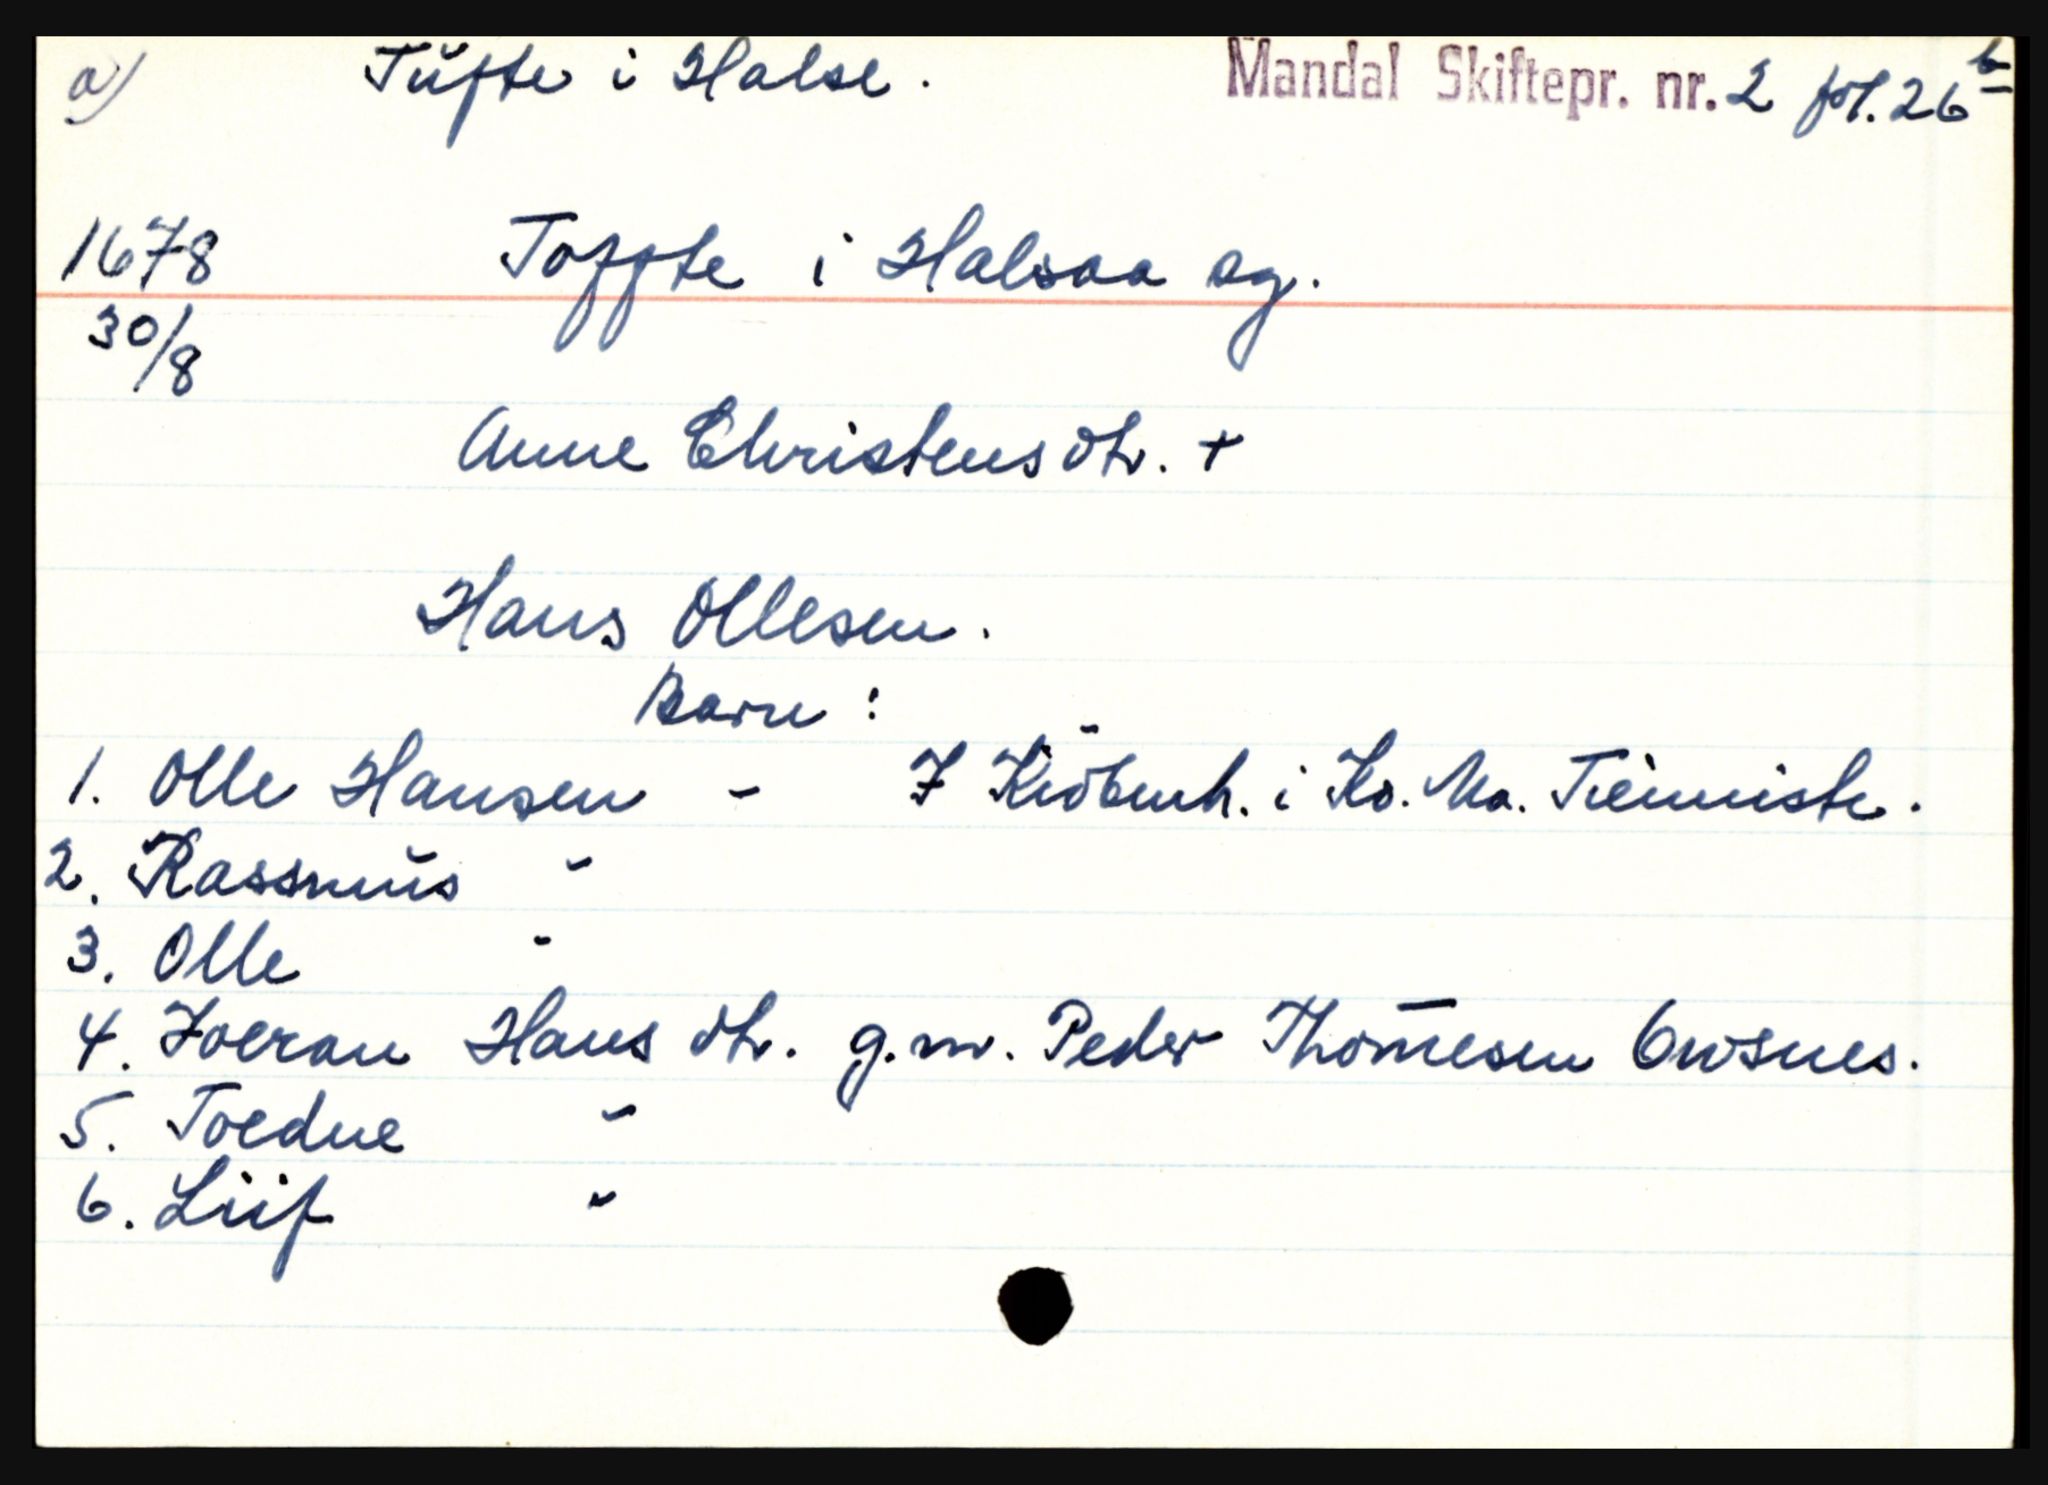 a) Tŭfte i Halse. Mandal Skiftepr. nr. 2 fol. 26 b
1678 Toffte i Halsaa sg.
30/8
Anne Christensdtr. +
Hans Ollesen.
Barn:
1. Olle Hansen - I Kiöbenh. i Ko. Ma. Tieniiste.
2. Rassmŭs "
3. Olle "
4. Joeran Hansdtr. g.m. Peder Thom̄esen
5. Toedne "
6. Liif "